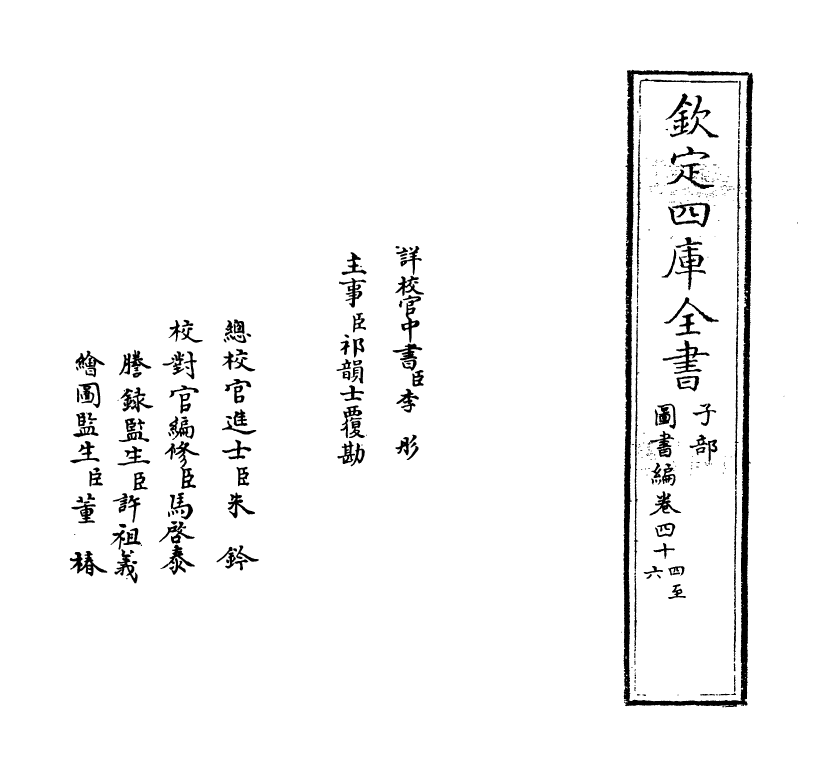 欽定四庫全書
子部
圖書編卷四十四至六
詳校官中書臣李彤
主事臣祁韻士覆勘
總校官進士臣朱鈐
校對官編修臣馬啓泰
謄録監生臣許祖義
繪圖監生臣董椿